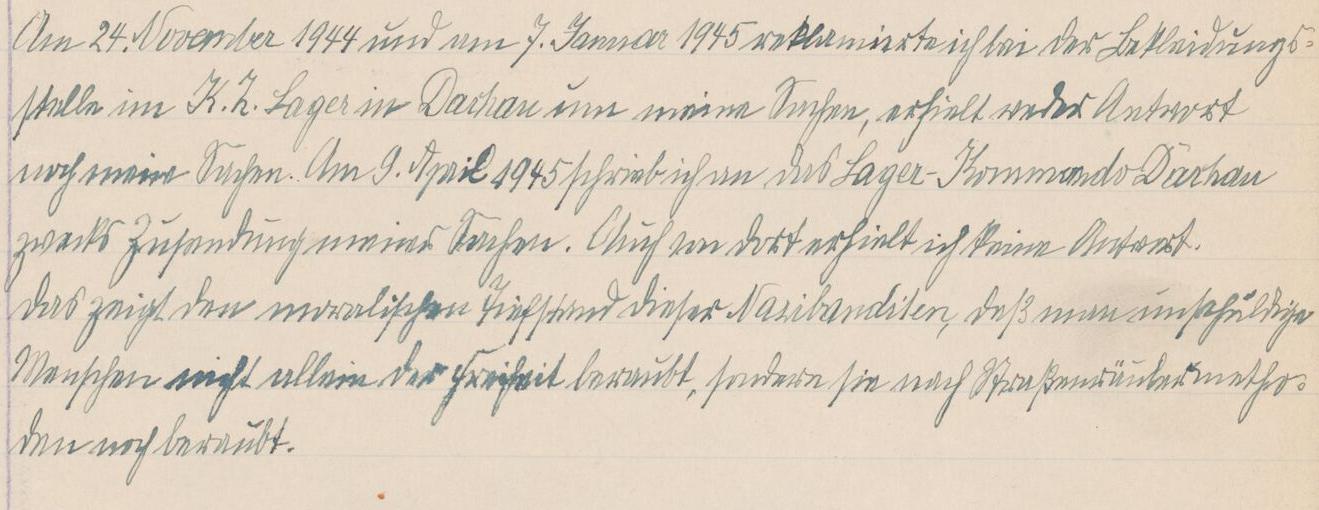 Am 24. November 1944 und am 7. Januar 1945 reklamierte ich bei der Bekleidungs=
stelle im K. Z. Lager in Dachau um meine Sachen, erhielt weder Antwort
noch meine Sachen. Am 9. April 1945 schrieb ich an das Lager-Kommando Dachau
zwecks Zusendung meiner Sachen. Auch von dort erhielt ich keine Antwort.
Das zeigt den moralischen Tiefstand dieser Nazibanditen, daß man unschuldige
Menschen nicht allein der Freiheit beraubt, sondern sie nach Straßenräubermetho=
den noch beraubt.